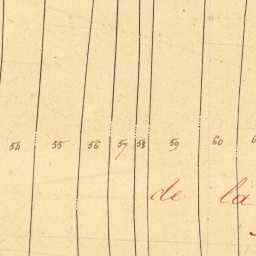 54 55 56 57 58 59 60
de la